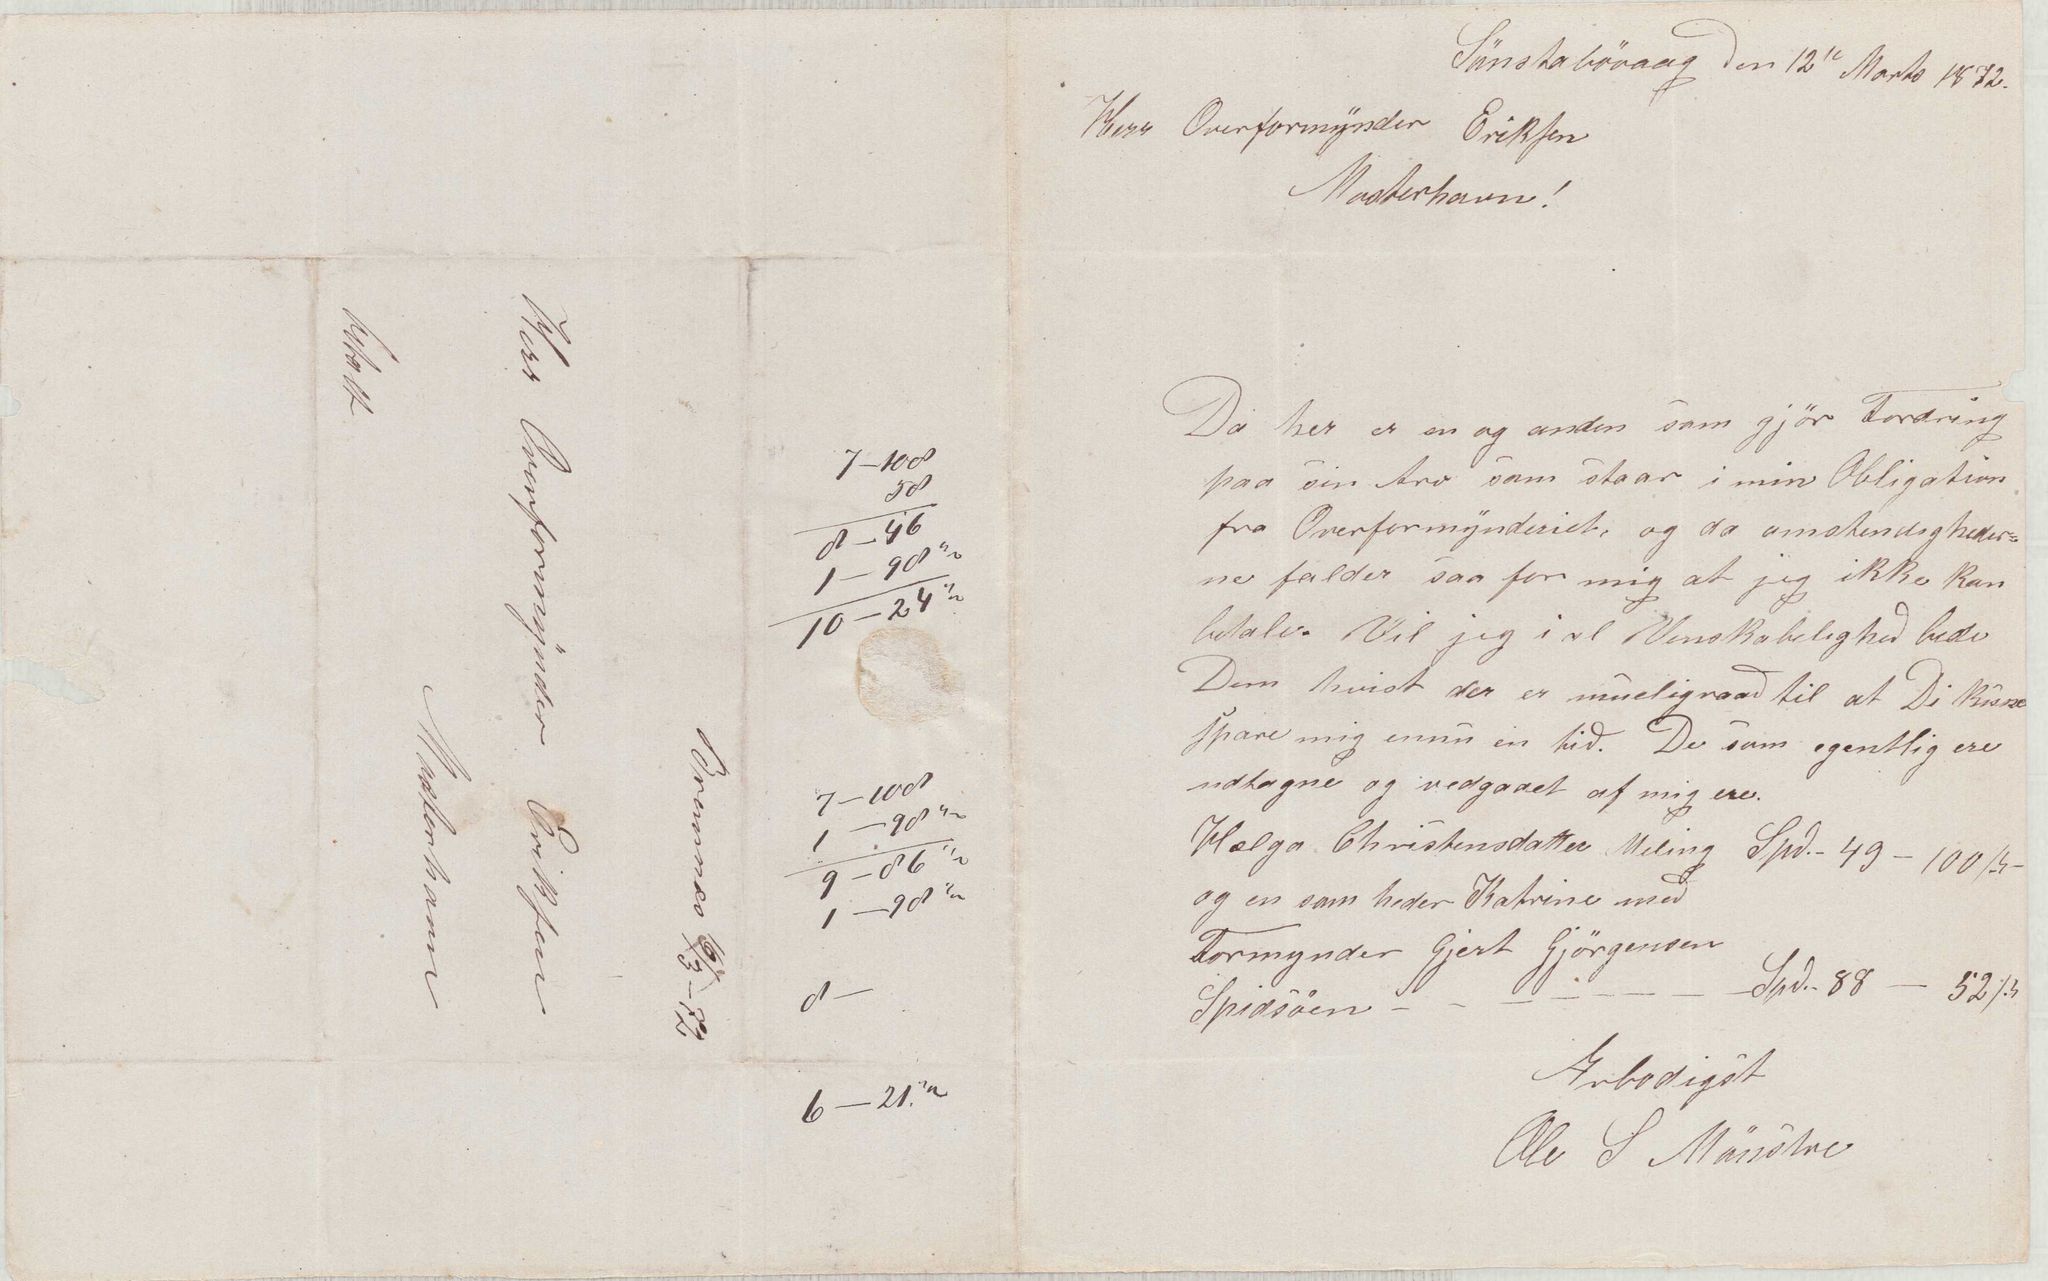 Sünstabövaag den 12te Marts 1872.
Herr Overformÿnder Eriksen
Mosterhavn!
Da her er en og anden som gjör Fordring
paa sin Arv som staar i min Obligation
fra Overformÿnderiet, og da omstendigheder=
ne falder saa for mig at jeg ikke kan
betale. Vil jeg i al Venskabelighed bede
Dem hvist der er mueligraad til at Di kune
spare mig ennu en tid. De som egentlig ere
udtagne og vedgaaet af mig ere.
Helga Christensdatter Meling Spd.- 49 - 100 ß-
og en som heder Katrine med
Formynder Gjert Gjörgensen
Spidsöen - - - - - - - Spd.- 88 - 52 ß
Ærbødigst
Ole S Mönstre
7-108
58
8-46
1-98
10-24
7-108
1-98
9-86
1-98
8-
6-21
Bremnes 16/3-72
Herr Overformÿnder Eriksen
Mosterhavn